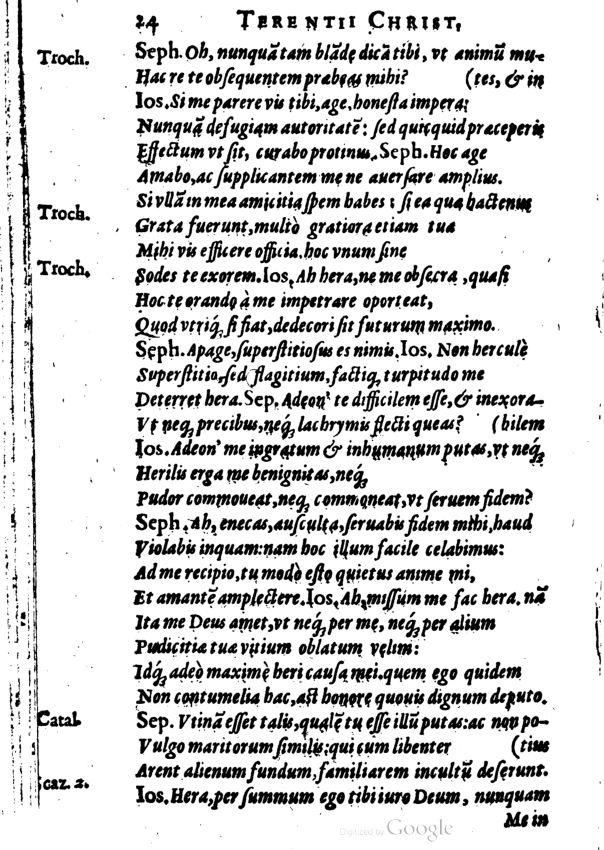 24 TERENTII CHRIST.
Troch. Seph. Oh, nunquã tam blãdę dicã tibi, vt animũ mu-
Hac re te obſequentem præbeas mihi? (tes, & in
Ios. Si me parere vis tibi, age, honeſta impera;
Nunquã defugiam autoritatẽ: ſed quicquid præceperis
Effectum vt ſit, curabo protinus. Seph. Hoc age
Amabo, ac ſupplicantem me ne auerſare amplius.
Si vllã in mea amicitia ſpem habes: ſi ea quæ hactenus
Troch. Grata fuerunt, multò gratiora etiam tua
Mihi vis efficere officia. hoc vnum ſine
Troch. Sodes te exorem. Ios. Ah hera, ne me obſecra, quaſi
Hoc te orando à me impetrare oporteat,
Quod vtriq́; ſi fiat, dedecori ſit futurum maximo.
Seph. Apage, ſuperſtitioſus es nimis. Ios. Non herculè
Superſtitio, ſed flagitium, factiq́; turpitudo me
Deterret hera. Sep. Adeon' te difficilem eſſe, & inexora-
Vt neq; precibus, neq́; lachrymis flecti queas? (bilem
Ios. Adeon' me ingratum & inhumanum putas, vt neq́;
Herilis erga me benignitas, neq́;
Pudor commoueat, neq; commoneat, vt ſeruem fidem?
Seph. Ah, enecas, auſculta, ſeruabis fidem mihi, haud
Violabis inquam: nam hoc illum facile celabimus:
Ad me recipio, tu modò eſto quietus anime mi,
Et amantẽ amplectere. Ios. Ah, miſſum me fac hera. nã
Ita me Deus amet, vt neq́; per me, neq́; per alium
Pudicitiæ tuæ vitium oblatum velim:
Idq́; adeò maximè heri cauſa mei. quem ego quidem
Non contumelia hac, aſt honore quouis dignum deputo.
Catal. Sep. Vtinã eſſet talis, qualẽ tu eſſe illũ putas: ac non po-
Vulgo maritorum ſimilis: qui cum libenter (tius
Arent alienum fundum, familiarem incultũ deſerunt.
ſcaz. 2. Ios. Hera, per ſummum ego tibi iuro Deum, nunquam
Me in
Digitized by Google